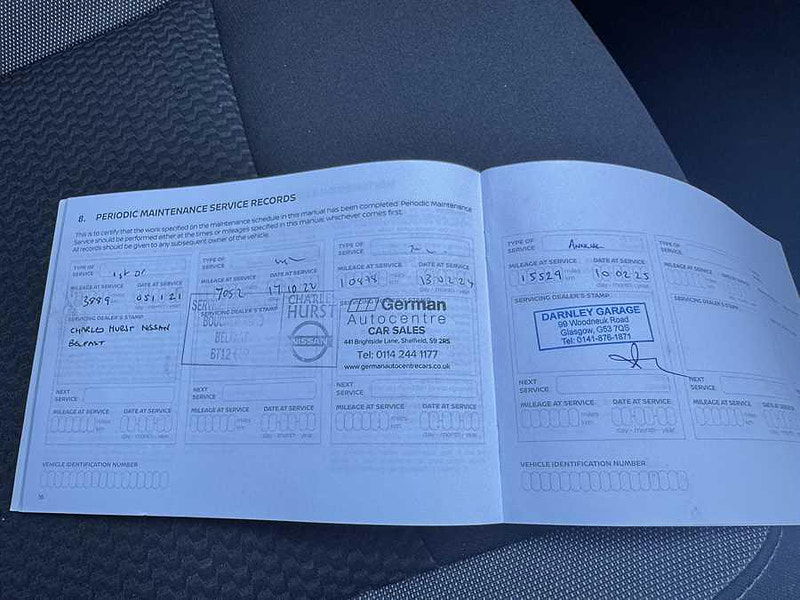 8. PERIODIC MAINTENANCE SERVICE RECORDS
This is to certify that the work specified on the maintenance schedule in this manual has been completed. Periodic Maintenance
Service should be performed either at the times or mileages specified in this manual, whichever comes first.
All records should be given to any subsequent owner of the vehicle.
TYPE OF
SERVICE
MILEAGE AT SERVICE DATE AT SERVICE
3889 miles 051121
km day - month - year
SERVICING DEALER'S STAMP
CHARLES HURST NISSAN
BELFAST
NEXT
SERVICE
MILEAGE AT SERVICE DATE AT SERVICE
miles
km day - month - year
VEHICLE IDENTIFICATION NUMBER
16
TYPE OF
SERVICE
MILEAGE AT SERVICE DATE AT SERVICE
7052 17.10.22
SERVICING DEALER'S STAMP
CHARLES
HURST
NISSAN
BT12
NEXT
SERVICE
MILEAGE AT SERVICE DATE AT SERVICE
miles
km day - month - year
TYPE OF
SERVICE
MILEAGE AT SERVICE DATE AT SERVICE
10498 13 02 24
German
Autocentre
CAR SALES
441 Brightside Lane, Sheffield, S9 2RS
Tel: 0114 244 1177
www.germanautocentrecars.co.uk
NEXT
SERVICE
MILEAGE AT SERVICE DATE AT SERVICE
miles
km day - month - year
TYPE OF
SERVICE
MILEAGE AT SERVICE DATE AT SERVICE
15529 miles 10 02 25
km day - month - year
SERVICING DEALER'S STAMP
DARNLEY GARAGE
99 Woodneuk Road
Glasgow, G53 7QS
Tel: 0141-876-1871
NEXT
SERVICE
MILEAGE AT SERVICE DATE AT SERVICE
miles
km day - month - year
VEHICLE IDENTIFICATION NUMBER
TYPE OF
SERVICE
MILEAGE AT SERVICE
miles
km
SERVICING DEALER'S STAMP
NEXT
SERVICE
MILEAGE AT SERVICE
miles
km